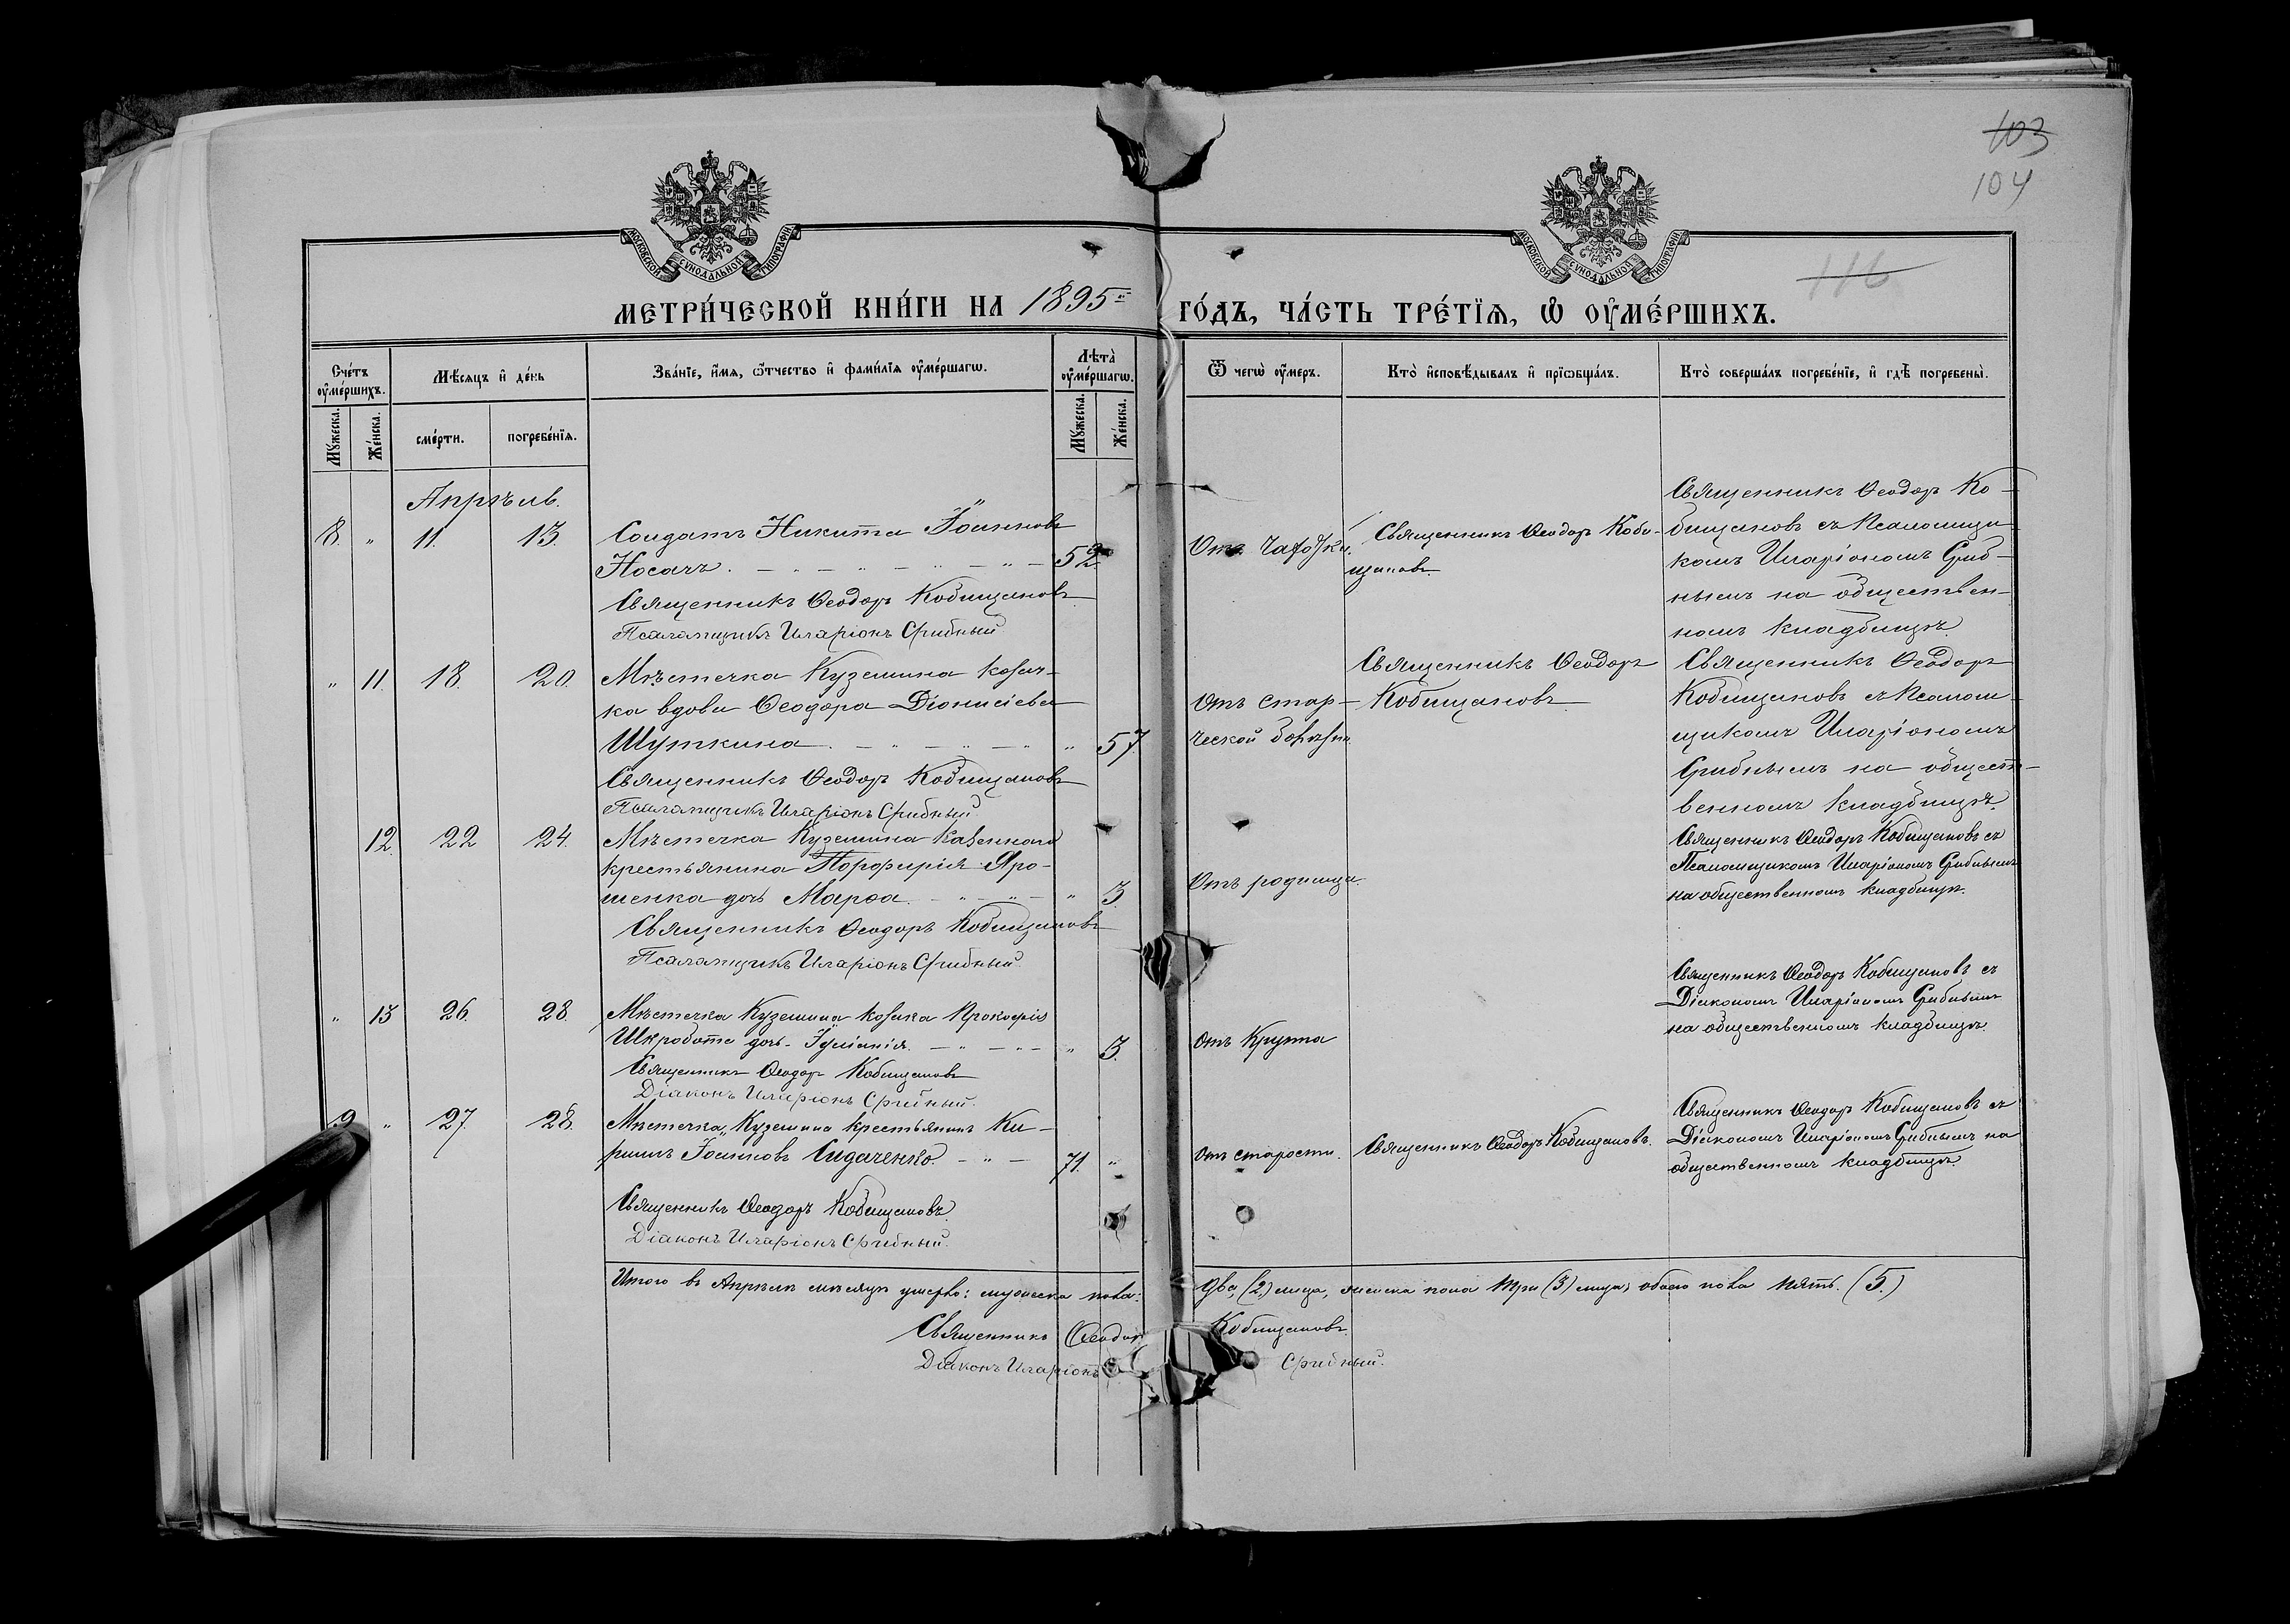 103
104
116
МОСКОВСКОЙ СУНОДАЛЬНОЙ ТИПОГРАФІИ
МОСКОВСКОЙ СУНОДАЛЬНОЙ ТИПОГРАФІИ
МЕТРИ́ЧЕСКОЙ КНИ́ГИ НА 1895й ГО́ДЪ, ЧА́СТЬ ТРЕ́ТІЯ, Ѡ ОУМЕ́РШИХЪ.
Сче́тъ оумершихъ.
Мѣсяцъ и день
Званіе, имя, ѻтчество и фамилія оумершагѡ.
Лѣта оумершагѡ.
Ѿ чегѡ оумеръ.
Кто исповѣдывалъ и пріѡбщалъ.
Кто совершалъ погребеніе, и гдѣ погребены.
Мужеска.
Женска.
смерти.
погребенія.
Мужеска.
Женска.
Апрѣль.
8. „ 11. 13.
Солдатъ Никита Іоанновъ
Носачъ. 52
Священникъ Ѳеодоръ Кобищановъ
Псаломщикъ Иларіонъ Срибный
Отъ Чахотки.
Священникъ Ѳеодоръ Коби-
щановъ.
Священникъ Ѳеодоръ Ко-
бищановъ съ Псаломщи
комъ Иларіономъ Сриб-
нымъ на обществен-
номъ кладбищѣ.
„ 11. 18. 20.
Мѣстечка Куземина козач-
ка вдова Ѳеодора Діонисіева
Шуткина. „ 57.
Священникъ Ѳеодоръ Кобищановъ
Псаломщикъ Иларіонъ Срибный
Отъ стар-
ческой болѣзни.
Священникъ Ѳеодоръ
Кобищановъ
Священникъ Ѳеодоръ
Кобищановъ съ Псалом-
щикомъ Иларіономъ
Срибнымъ на общест-
венномъ кладбищѣ.
12. 22 24.
Мѣстечка Куземина казеннаго
крестьянина Порфирія Яро-
шенка дочь Марѳа. „ 3.
Священникъ Ѳеодоръ Кобищановъ
Псаломщикъ Иларіонъ Срибный
Отъ родимца.
Священникъ Ѳеодоръ Кобищановъ съ
Псаломщикомъ Иларіономъ Срибнымъ
на общественномъ кладбищѣ.
„ 13 26. 28.
Мѣстечка Куземина козака Прокофія
Шкробота дочь Іуліанія. „ 3.
Священникъ Ѳеодоръ Кобищановъ
Діаконъ Иларіонъ Срибный.
Отъ Крупа
Священникъ Ѳеодоръ Кобищановъ съ
Діакономъ Иларіономъ Срибнымъ
на общественномъ кладбищѣ.
9 „ 27. 28.
Мѣстечка Куземина крестьянинъ Ки-
риллъ Іоанновъ Сидаченко. 71. „
Священникъ Ѳеодоръ Кобищановъ.
Діаконъ Иларіонъ Срибный.
Отъ старости.
Священникъ Ѳеодоръ Кобищановъ.
Священникъ Ѳеодоръ Кобищановъ съ
Діакономъ Иларіономъ Срибнымъ на
общественномъ кладбищѣ.
Итого въ Апрѣлѣ мѣсяцѣ умерло: мужеска пола: два, (2.) лица, женска пола три (3) лица, обоего пола пять. (5.)
Священникъ Ѳеодоръ Кобищановъ.
Діаконъ Иларіонъ Срибный.